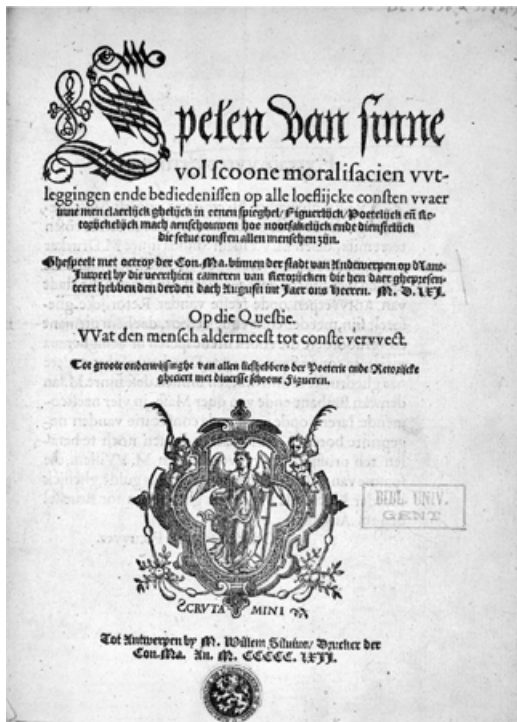 Spelen van sinne
vol scoone moralisacien vvt-
leggingen ende bediedenissen op alle loeflijcke consten vvaer
inne men claerlijck ghelijck in eenen spieghel/Figuerlijck/Poetelijck eñ Re-
torijckelijck mach aenschouwen hoe nootsakelijck ende dienstelijck
die selue consten allen menschen zijn.
Ghespeelt met octroy der Con. Ma. binnen der stadt van Andtwerpen op dLant-
Juweel by die veerthien cameren van Retorijcken die hen daer ghepresen-
teert hebben den derden dach Augusti int Jaer ons Heeren. M. D. LXI.
Op die Questie.
VVat den mensch aldermeest tot conste vervvect.
Tot groote onderwijsinghe van allen liefhebbers der Poeterie ende Retorijcke
gheciert met diuersche schoone Figueren.
BIBL. UNIV.
GENT
SCRVTAMINI
Tot Antwerpen by M. Willem Siluius/ Drucker der
Con. Ma. An. M. CCCCC. LXII.